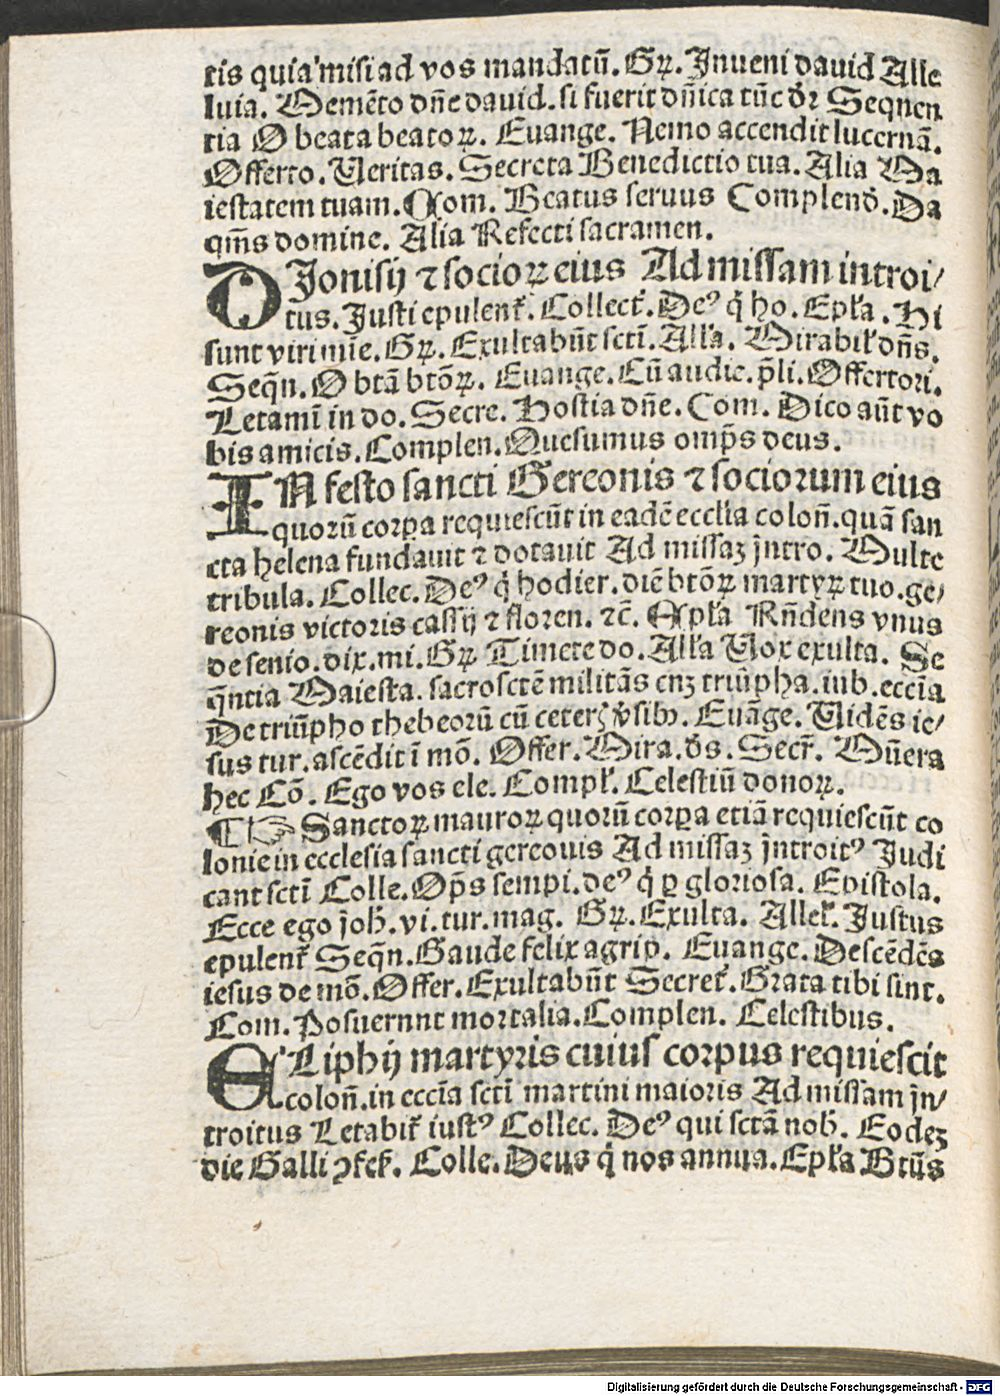 tis quia misi ad vos mandatū. Gꝝ. Inueni dauid Alle
luia. Memēto dn̄e dauid. si fuerit dn̄ica tūc dr̄ Seqnen
tia O beata beatoꝝ. Euange. Nemo accendit lucernā.
Offerto. Veritas. Secreta Benedictio tua. Alia Ma
iestatem tuam. Com. Beatus seruus Complend̄. Da
qm̄s domine. Alia Refecti sacramen.
DIonisij ⁊ socioꝝ eius Ad missam introi/
tus. Iusti epulent᷑. Collect᷑. Deꝰ q̇ ho. Epl̄a. Hi
sunt viri mīe. Gꝝ. Exultabūt scti. All̄a. Mirabil᷑ dn̄s.
Seqn̄. O btā btōꝝ. Euange. Cū audie. p̄li. Offertori.
Letamī in do. Secre. Hostia dn̄e. Com. Dico aūt vo
bis amicis. Complen. Quesumus omp̄s deus.
IN festo sancti Gereonis ⁊ sociorum eius
quorū corꝑa requiescūt in eadē eccl̄ia colon̄. quā san
cta helena fundauit ⁊ dotauit Ad missaꝫ jntro. Multe
tribula. Collec. Deꝰ q̇ hodier. diē btōꝝ martyꝝ tuo. ge/
reonis victoris cassij ⁊ floren. ⁊c̄. Epl̄a Rn̄dens vnus
de senio. dix. mi. Gꝝ Timete do. All̄a Vox exulta. Se
q̄ntia Maiesta. sacrosctē militās cnꝫ triūpha. iub. ecc̄ia
De triūpho thebeorū cū ceterꝭ v̄sibꝰ. Euāge. Vidēs ie/
sus tur. ascēdit ī mō. Offer. Mira. d̄s. Secr̄. Mūera
hec Cō. Ego vos ele. Compl᷑. Celestiū donoꝝ.
¶ ☞ Sanctoꝝ mauroꝝ quorū corꝑa etiā requiescūt co
lonie in ecclesia sancti gereouis Ad missaꝫ jntroitꝰ Judi
cant sctī Colle. Op̄s sempi. deꝰ q̇ ꝑ gloriosa. Epistola.
Ecce ego joh̄. vi. tur. mag. Gꝝ. Exulta. Allel᷑. Justus
epulent᷑ Seqn̄. Gaude felix agrip. Euange. Descēdēs
iesus de mō. Offer. Exultabūt Secret᷑. Grata tibi sint.
Com. Posuernnt mortalia. Complen. Celestibus.
ELiphij martyris cuius corpus requiescit
colon̄. in ecc̄ia sctī martini maioris Ad missam jn/
troitus Letabit᷑ iustꝰ Collec. Deꝰ qui sctā nob̄. Eodeꝫ
die Galli ꝯfes̄. Colle. Deus q̇ nos annua. Epl̄a Btūs
Digitalisierung gefördert durch die Deutsche Forschungsgemeinschaft - DFG